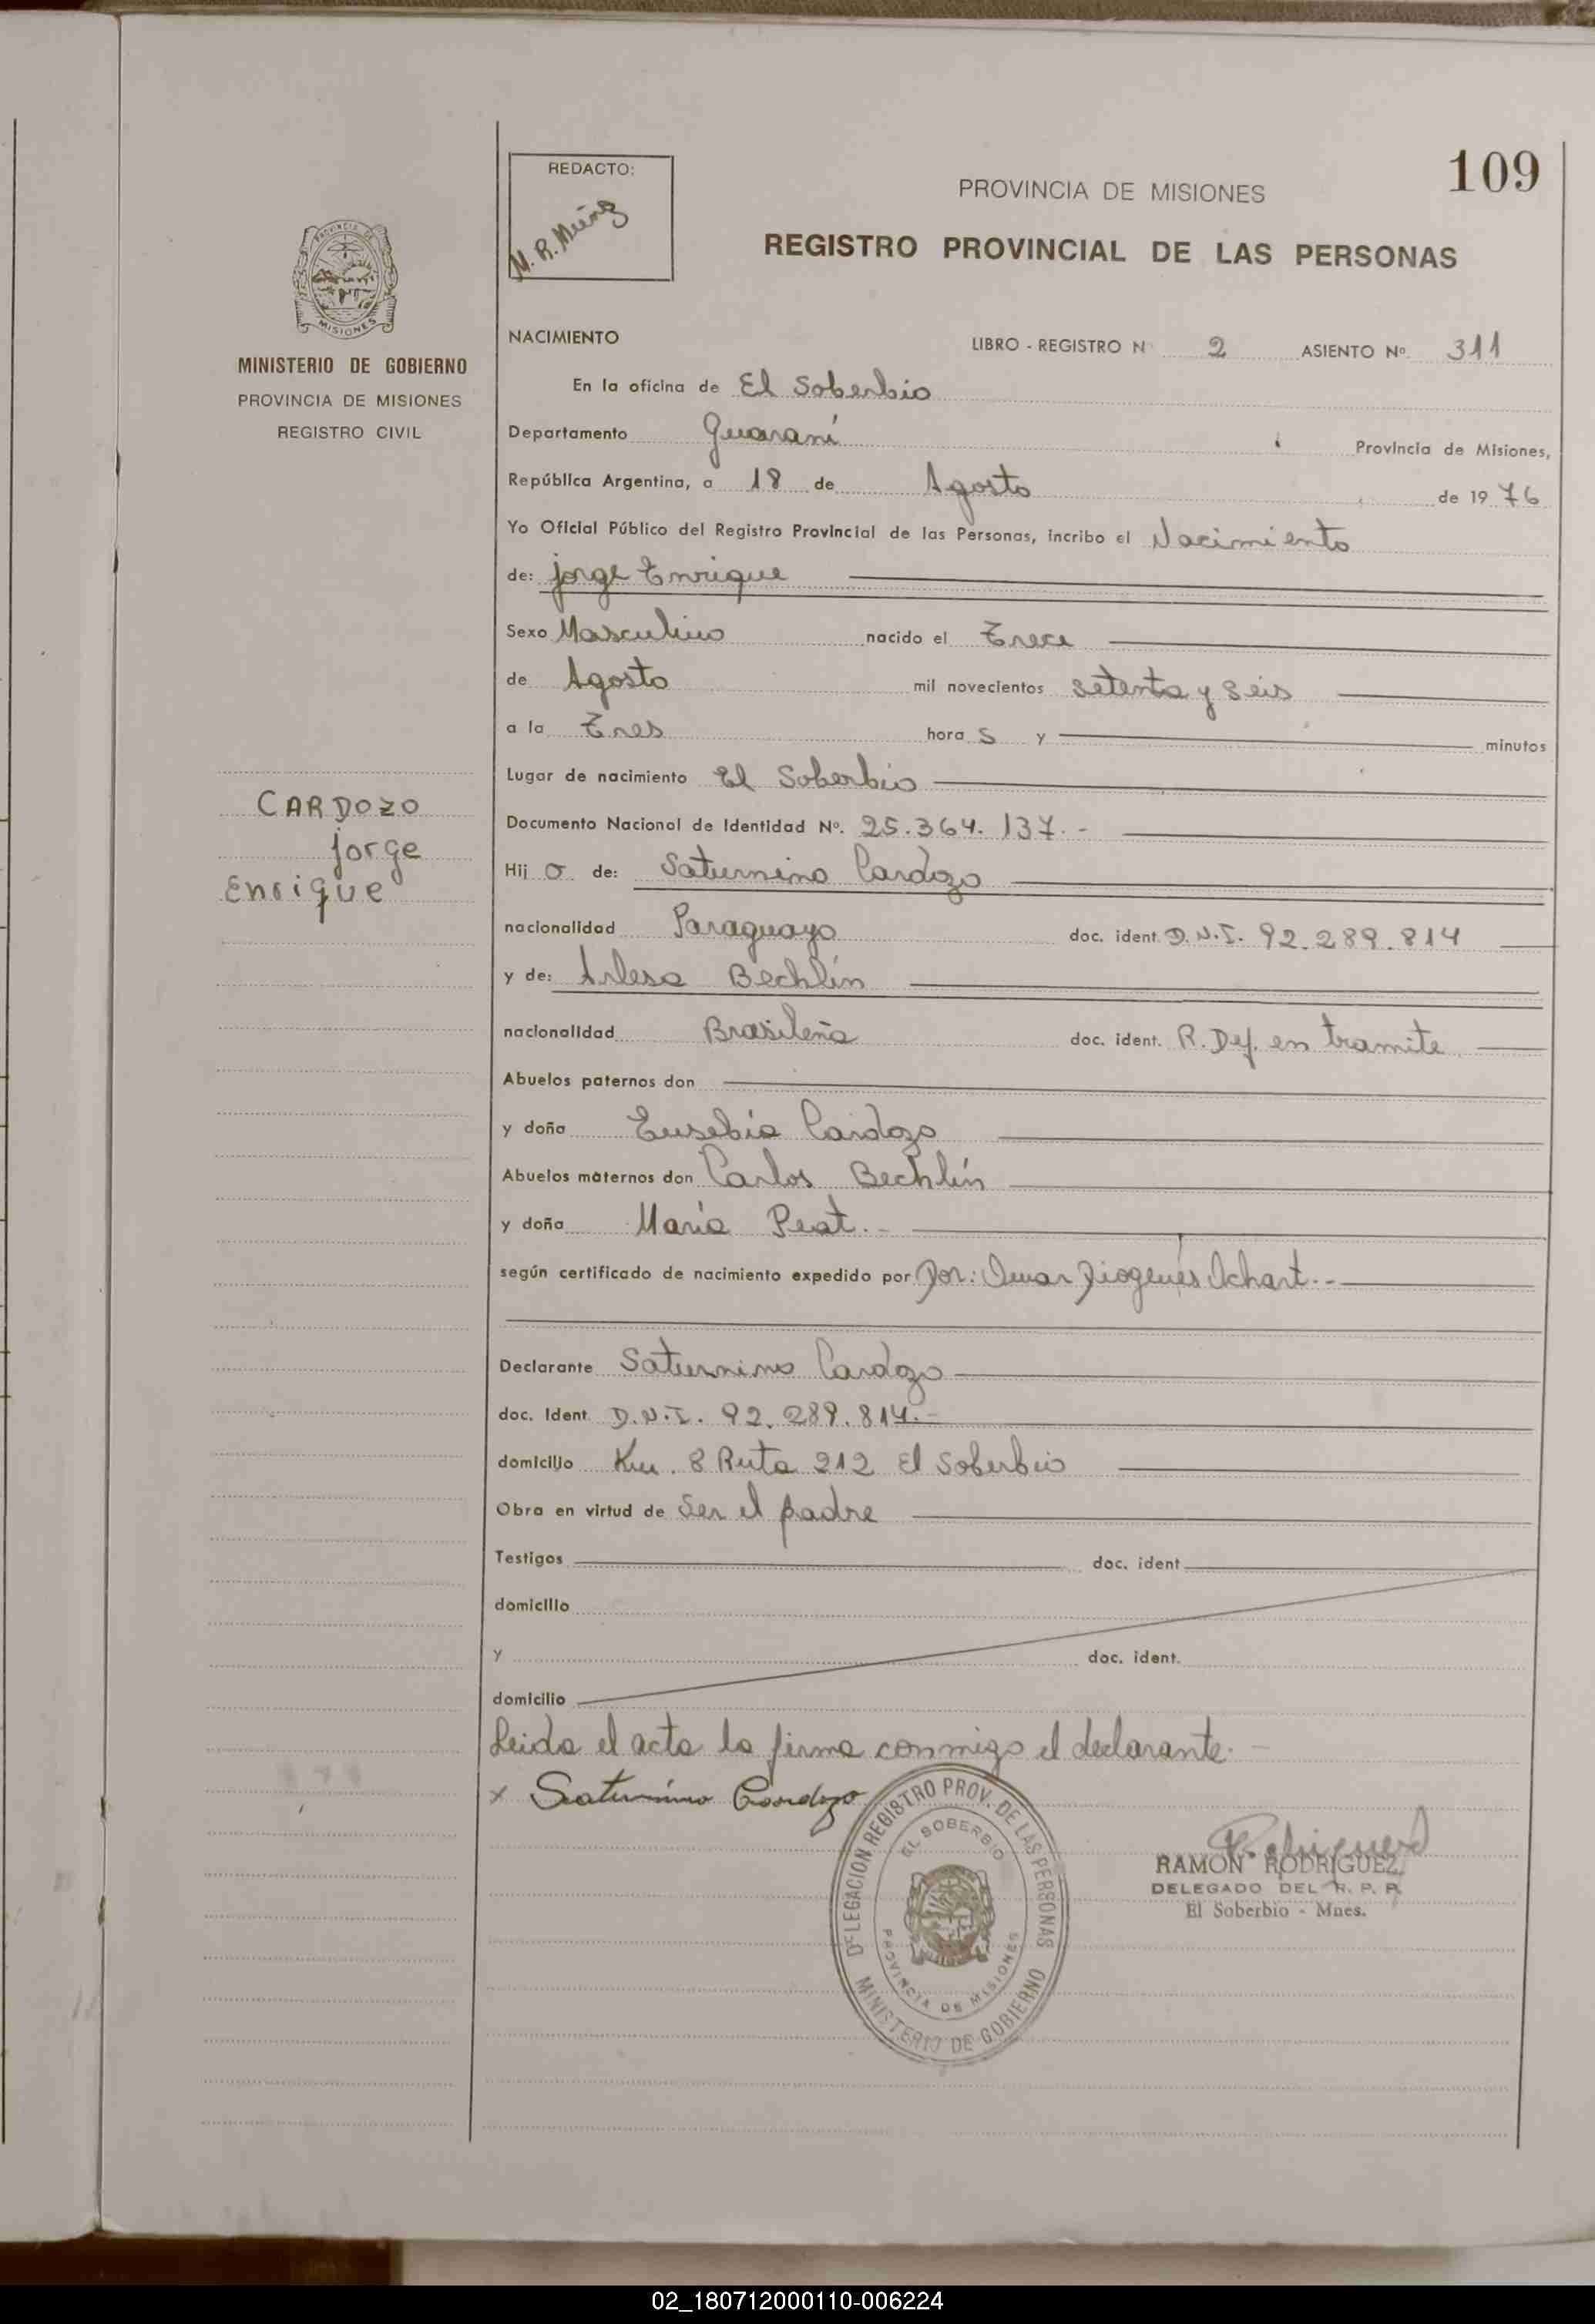 109
REDACTO:
N. R. Muñoz
PROVINCIA DE MISIONES
REGISTRO PROVINCIAL DE LAS PERSONAS
PROVINCIA DE
MISIONES
MINISTERIO DE GOBIERNO
PROVINCIA DE MISIONES
REGISTRO CIVIL
CARDOZO
jorge
Enrique
NACIMIENTO LIBRO - REGISTRO N 2 ASIENTO Nº 311
En la oficina de El Soberbio
Departamento Guaraní Provincia de Misiones,
República Argentina, a 18 de Agosto de 19 76
Yo Oficial Público del Registro Provincial de las Personas, incribo el Nacimiento
de: jorge Enrique
Sexo Masculino nacido el Trece
de Agosto mil novecientos setenta y seis
a la Tres hora s y minutos
Lugar de nacimiento El Soberbio
Documento Nacional de Identidad Nº. 25.364.137.-
Hij o de: Saturnino Cardozo
nacionalidad Paraguayo doc. ident. D.N.I. 92.289.814
y de: Arlesa Bechlín
nacionalidad Brasileña doc. ident. R. Def. en tramite
Abuelos paternos don
y doña Eusebia Cardozo
Abuelos maternos don Carlos Bechlín
y doña María Peat.-
según certificado de nacimiento expedido por Dor: Omar Diogenes Ichart.-
Declarante Saturnino Cardozo
doc. Ident. D.N.I. 92.289.814.-
domicilio Km. 8 Ruta 212 El Soberbio
Obra en virtud de Ser el padre
Testigos doc. ident
domicilio
y doc. ident.
domicilio
Leida el acta la firma conmigo el declarante.-
x Saturnino Cardozo
DELEGACION REGISTRO PROV. DE LAS PERSONAS
EL SOBERBIO
PROVINCIA DE MISIONES
MINISTERIO DE GOBIERNO
RAMON RODRIGUEZ
DELEGADO DEL R. P. P.
El Soberbio - Mnes.
02_180712000110-006224